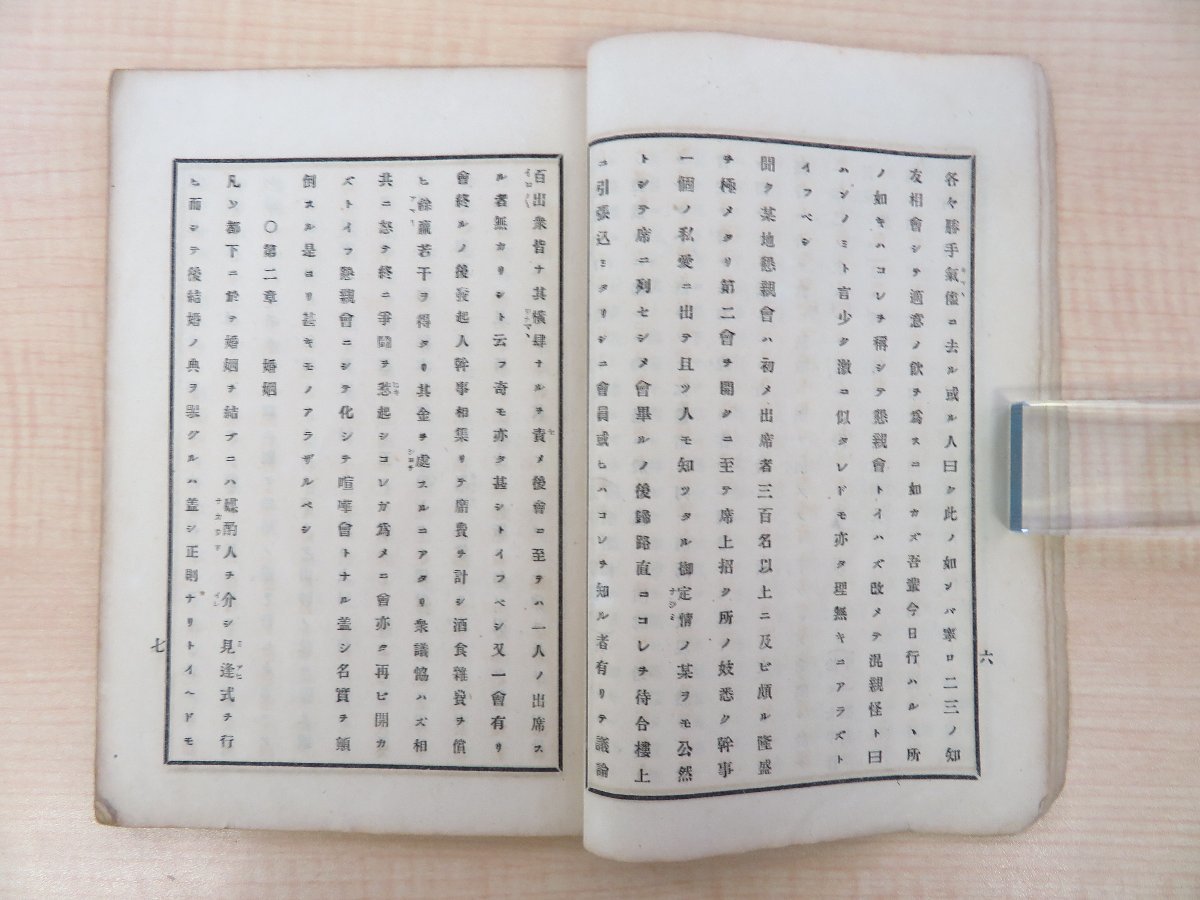 各々勝手氣儘ニ去ル或ル人曰ク此ノ如ンバ寧ロ二三ノ知
友相會シテ適意ノ飲ヲ爲スニ如カズ吾輩今日行ハルヽ所
ノ如キハコレヲ稱シテ懇親會トイハズ改メテ混親怪ト曰
ハンノミト言少ク激ニ似タレドモ亦タ理無キニアラズト
イフベシ
聞ク某地懇親會ハ初メ出席者三百名以上ニ及ビ頗ル隆盛
ヲ極メタリ第二會ヲ開クニ至テ席上招ク所ノ妓悉ク幹事
一個ノ私愛ニ出テ且ツ人モ知ツタル御定情ノ某ヲモ公然
トシテ席ニ列セシメ會畢ルノ後歸路直ニコレヲ待合樓上
ニ引張込ミタリシニ會員或ヒハコレヲ知ル者有リテ議論
六
百出衆皆ナ其橫肆ナルヲ責メ後會ニ至テハ一人ノ出席ス
ル者無カリシト云フ奇モ亦タ甚シトイフベシ又一會有リ
會終ルノ後發起人幹事相集リテ席費ヲ計シ酒食雜費ヲ償
ヒ餘贏若干ヲ得タリ其金ヲ處スルニアタリ衆議協ハズ相
共ニ怒テ終ニ爭鬪ヲ惹起シコレガ爲メニ會亦タ再ビ開カ
ズトイフ懇親會ニシテ化シテ喧嘩會トナル盖シ名實ヲ顚
倒スル是ヨリ甚キモノアラザルベシ
〇第二章 婚姻
凡ソ都下ニ於テ婚姻ヲ結ブニハ媒酌人ヲ介シ見逢式ヲ行
ヒ而シテ後結婚ノ典ヲ擧グルハ盖シ正則ナリトイヘドモ
七